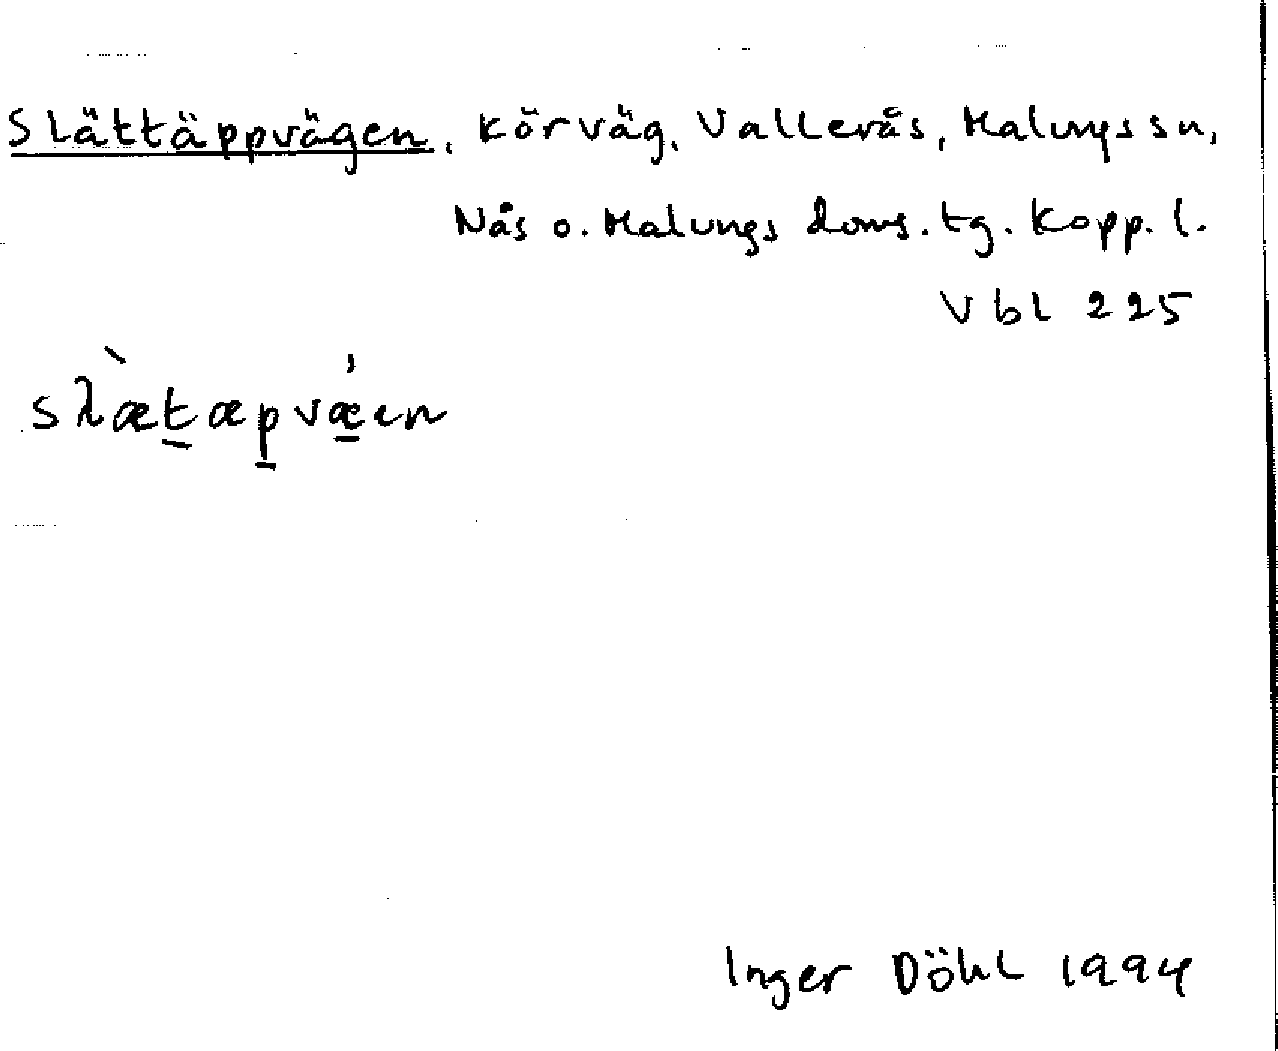 Slättäppvägen, Körväg, Vallerås, Malungs sn,
Nås o. Malungs doms. tg. Kopp. l.
Vbl 225
sλæ̀t̲æp̲vǽ̲en
Inger Döhl 1994